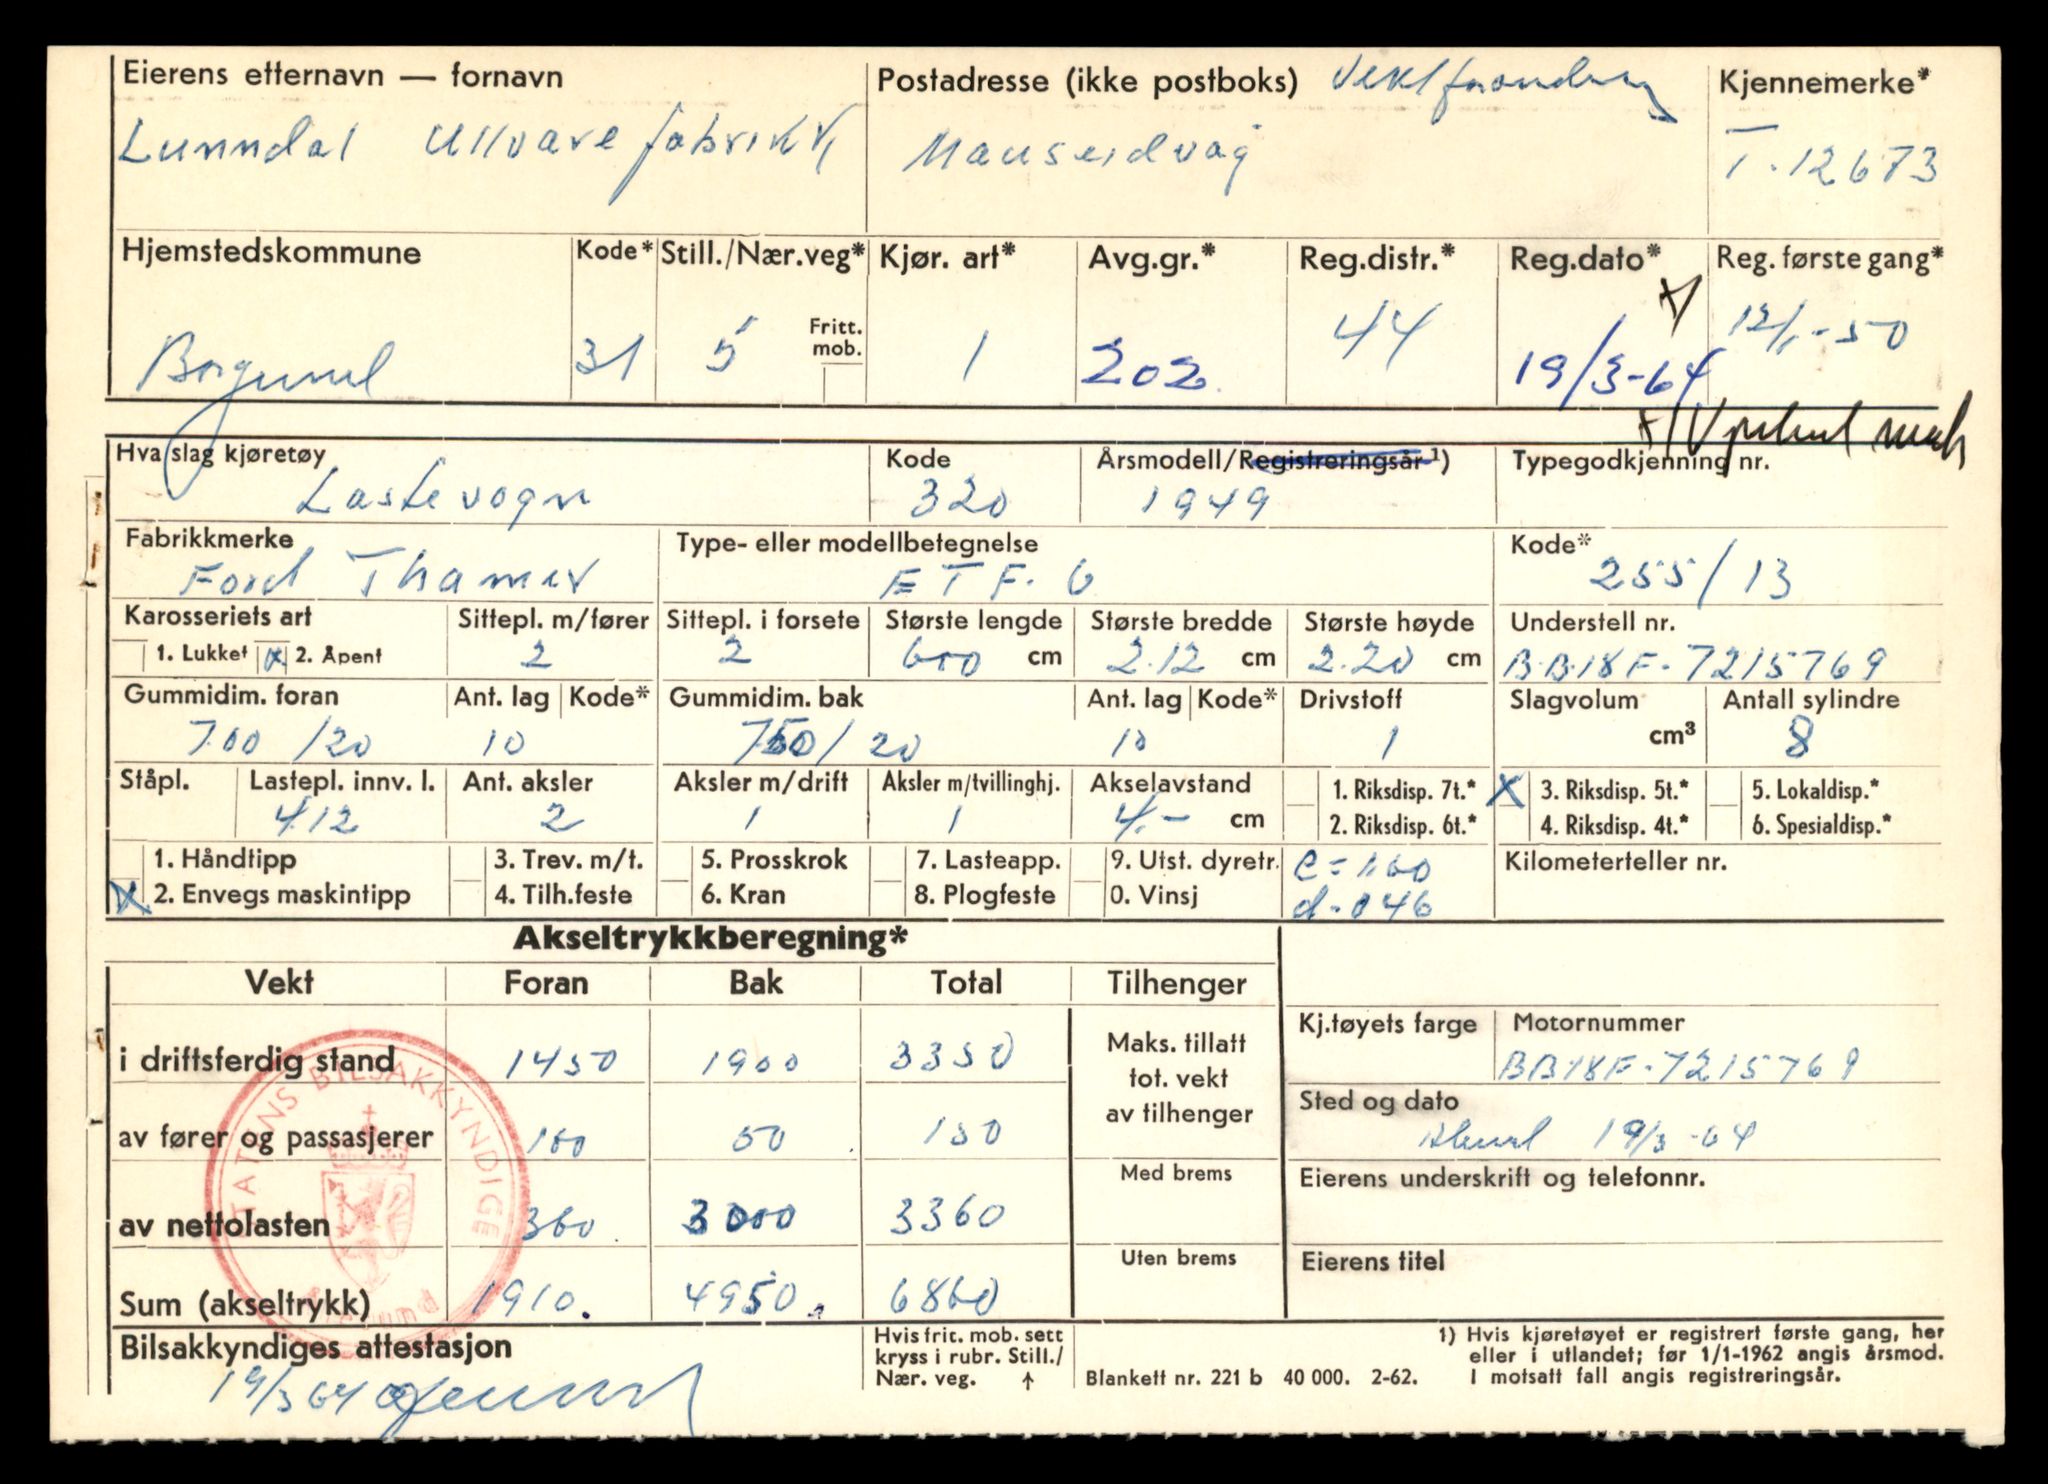 Eierens etternavn — fornavn
Lunndal Ullvarefabrikk
Postadresse (ikke postboks)
Mauseidvåg
Kjennemerke*
T-12673
Hjemstedskommune
Borgund
Kode*
31
Still./Nær.veg*
5
Fritt. mob.
Kjør. art*
1
Avg.gr.*
202
Reg.distr.*
44
Reg.dato*
19/3-64
Reg. første gang*
12/1-50
Hva slag kjøretøy
Lastevogn
Kode
320
Årsmodell/Registreringsår 1)
1949
Typegodkjenning nr.
Fabrikkmerke
Ford Thames
Type- eller modellbetegnelse
E T F. 6
Kode*
255/13
Karosseriets art
1. Lukket x 2. Åpent
Sittepl. m/fører
2
Sittepl. i forsete
2
Største lengde
600 cm
Største bredde
2.12 cm
Største høyde
2.20 cm
Understell nr.
BB18F-7215769
Gummidim. foran
700/20
Ant. lag
10
Kode*
Gummidim. bak
750/20
Ant. lag
10
Kode*
Drivstoff
1
Slagvolum
cm³
Antall sylindre
8
Ståpl.
Lastepl. innv. l.
4.12
Ant. aksler
2
Aksler m/drift
1
Aksler m/tvillinghj.
1
Akselavstand
4.- cm
1. Riksdisp. 7t.*
2. Riksdisp. 6t.*
x 3. Riksdisp. 5t.*
4. Riksdisp. 4t.*
5. Lokaldisp.*
6. Spesialdisp.*
1. Håndtipp
x 2. Envegs maskintipp
3. Trev. m/t.
4. Tilh.feste
5. Prosskrok
6. Kran
7. Lasteapp.
8. Plogfeste
9. Utst. dyretr.
0. Vinsj
c = 1.60
d - 046
Kilometerteller nr.
Akseltrykkberegning*
Vekt Foran Bak Total Tilhenger
i driftsferdig stand 1450 1900 3350
av fører og passasjerer 100 50 150
av nettolasten 360 3000 3360
Sum (akseltrykk) 1910. 4950. 6860
Maks. tillatt
tot. vekt
av tilhenger
Med brems
Uten brems
Kj.tøyets farge
Motornummer
BB18F-7215769
Sted og dato
19/3-64
Eierens underskrift og telefonnr.
Eierens titel
STATENS BILSAKKYNDIGE
Bilsakkyndiges attestasjon
19/3 64
Hvis fric. mob. sett
kryss i rubr. Still./
Nær. veg. ↑
Blankett nr. 221 b 40 000. 2-62.
1) Hvis kjøretøyet er registrert første gang, her
eller i utlandet; før 1/1-1962 angis årsmod.
I motsatt fall angis registreringsår.